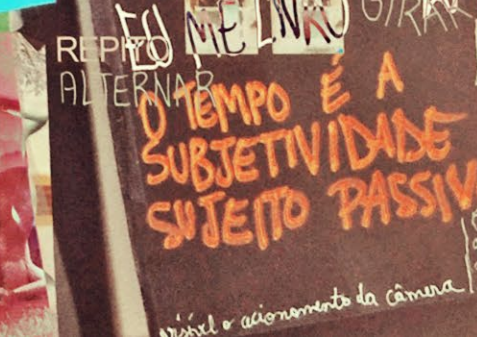 EU ME LIVRO GIRAR
REPITO
ALTERNAR
O TEMPO É A
SUBJETIVIDADE
SUJEITO PASSIV
o acionamento da câmera